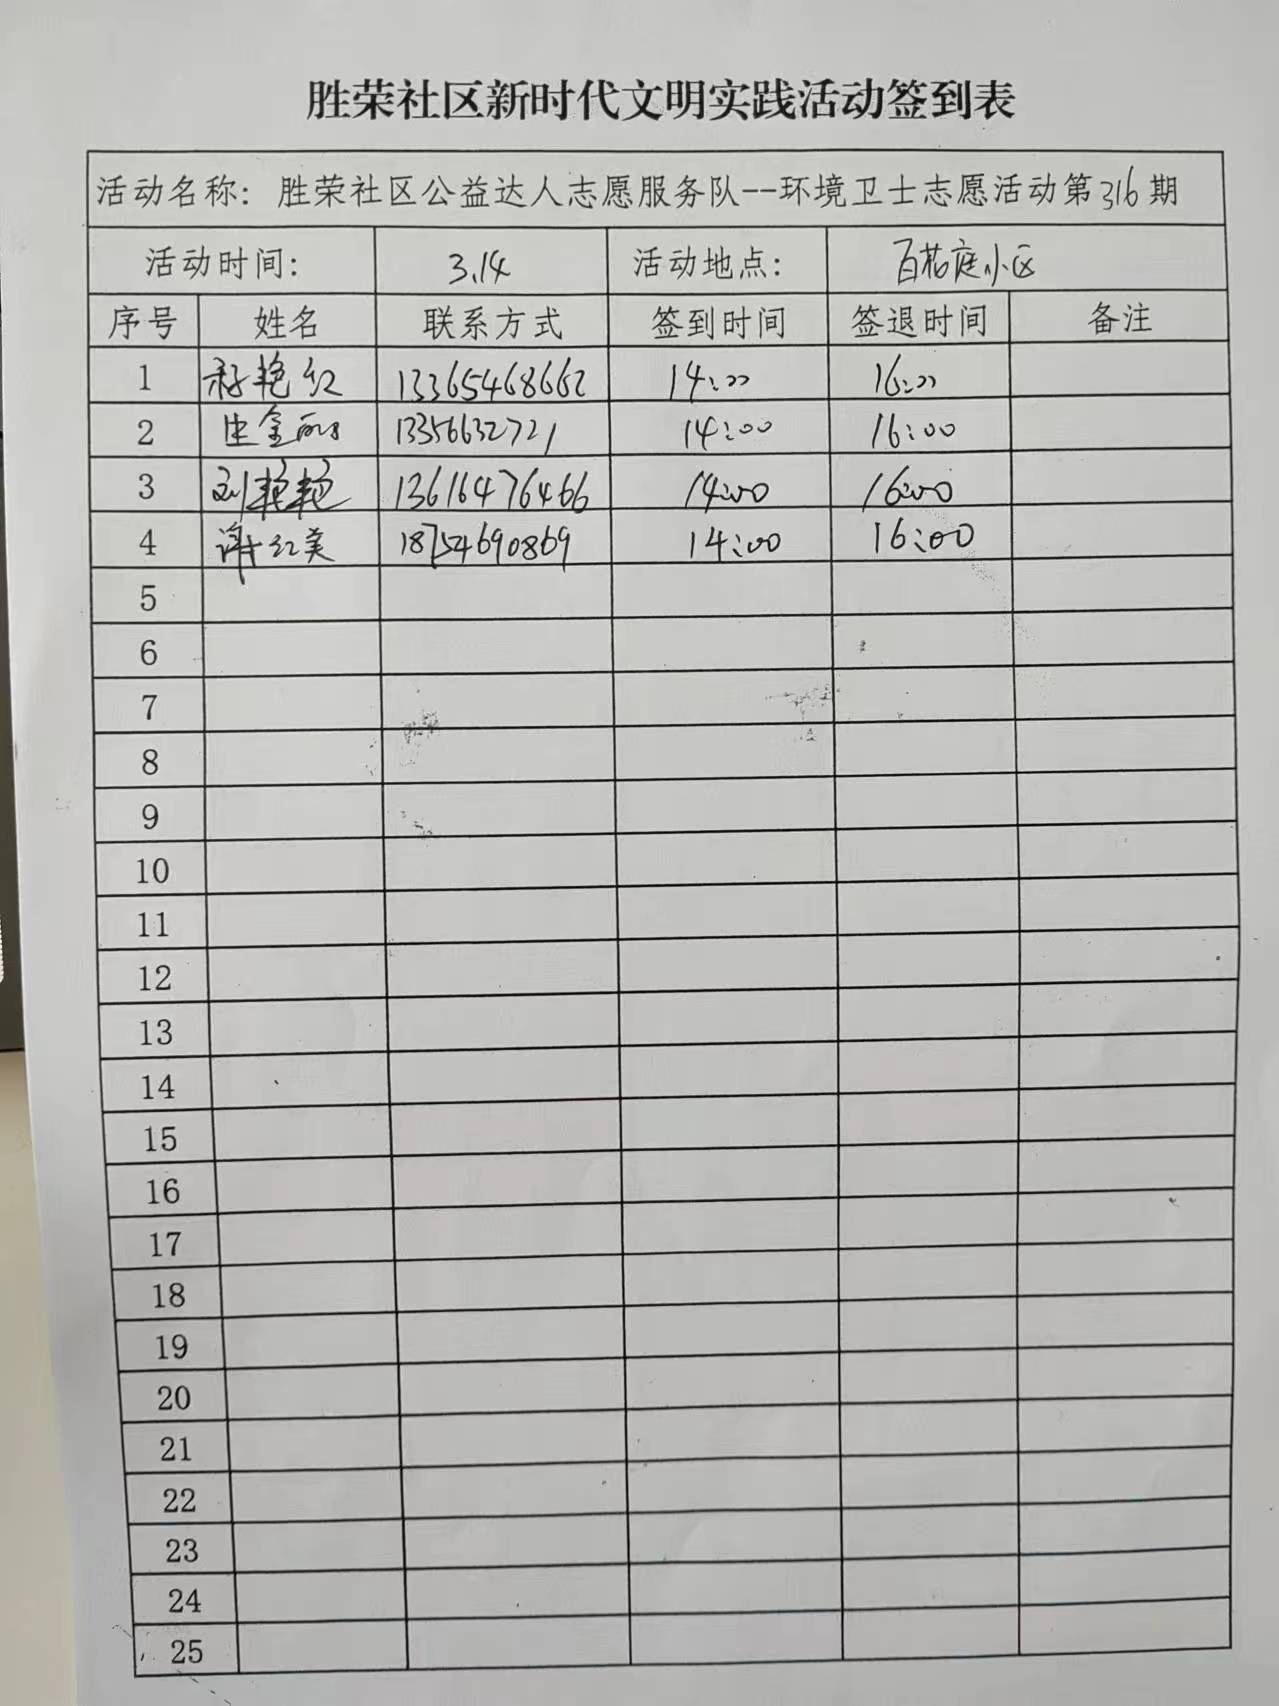 胜荣社区新时代文明实践活动签到表
活动名称：胜荣社区公益达人志愿服务队--环境卫士志愿活动第316期
活动时间： 3.14 活动地点： 百花庭小区
序号 姓名 联系方式 签到时间 签退时间 备注
1 艳红 13365468662 14:00 16:00
2 金丽 13356632721 14:00 16:00
3 刘艳艳 13616476466 14:00 16:00
4 谢红美 18754690869 14:00 16:00
5
6
7
8
9
10
11
12
13
14
15
16
17
18
19
20
21
22
23
24
25